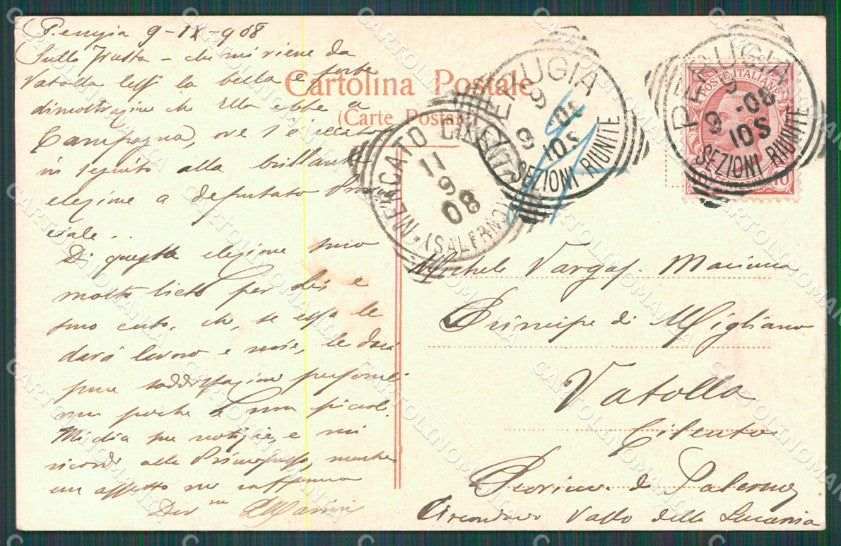 Perugia 9-IX-908
Sulla Gazzetta - che mi viene da
Vatolla lessi la bella e forte
dimostrazione che Ella ebbe a
Campagna, ove s'è recato
in seguito alla brillante
elezione a deputato
Di questa elezione sono
molto lieto per Lei e
sono certo, che, se essa le
darà lavoro e noie, le darà
pure soddisfazioni
non poche e non piccole.
Mi dia sue notizie, e mi
ricordi alla Principessa, mentre
con affetto mi raffermo
Dev mo
Cartolina Postale
(Carte Postale)
PERUGIA
9
9 - 08
10 S
SEZIONI RIUNITE
PERUGIA
9
9 - 08
10 S
SEZIONI RIUNITE
MERCATO CILENTO
11
9
08
(SALERNO)
POSTE ITALIANE
10
Michele Vargas Macciucca
Principe di Migliano
Vatolla
Cilento
Provincia di Salerno
Circondario Vallo della Lucania
CARTOLINOMANIA